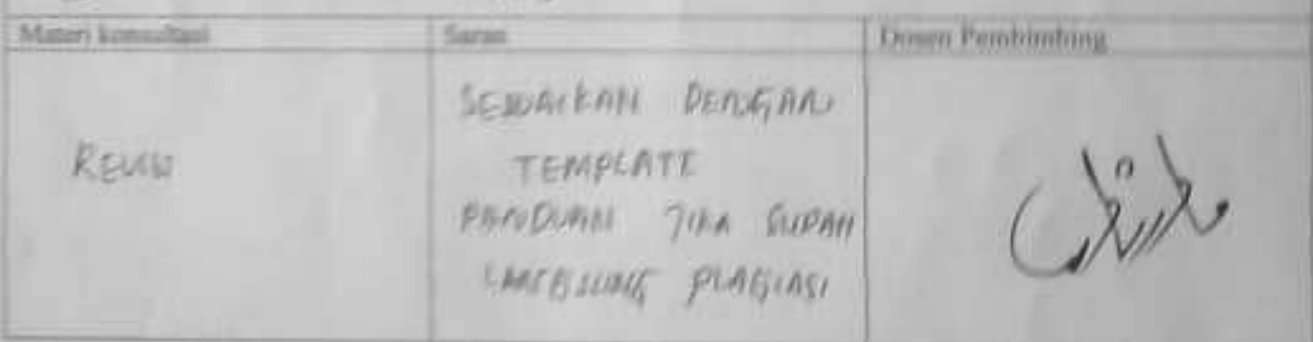 Materi konsultasi
Saran
Dosen Pembimbing
SESUAIKAN DENGAN
TEMPLATE
PANDUAN JIKA SUDAH
LANGSUNG PLAGIASI